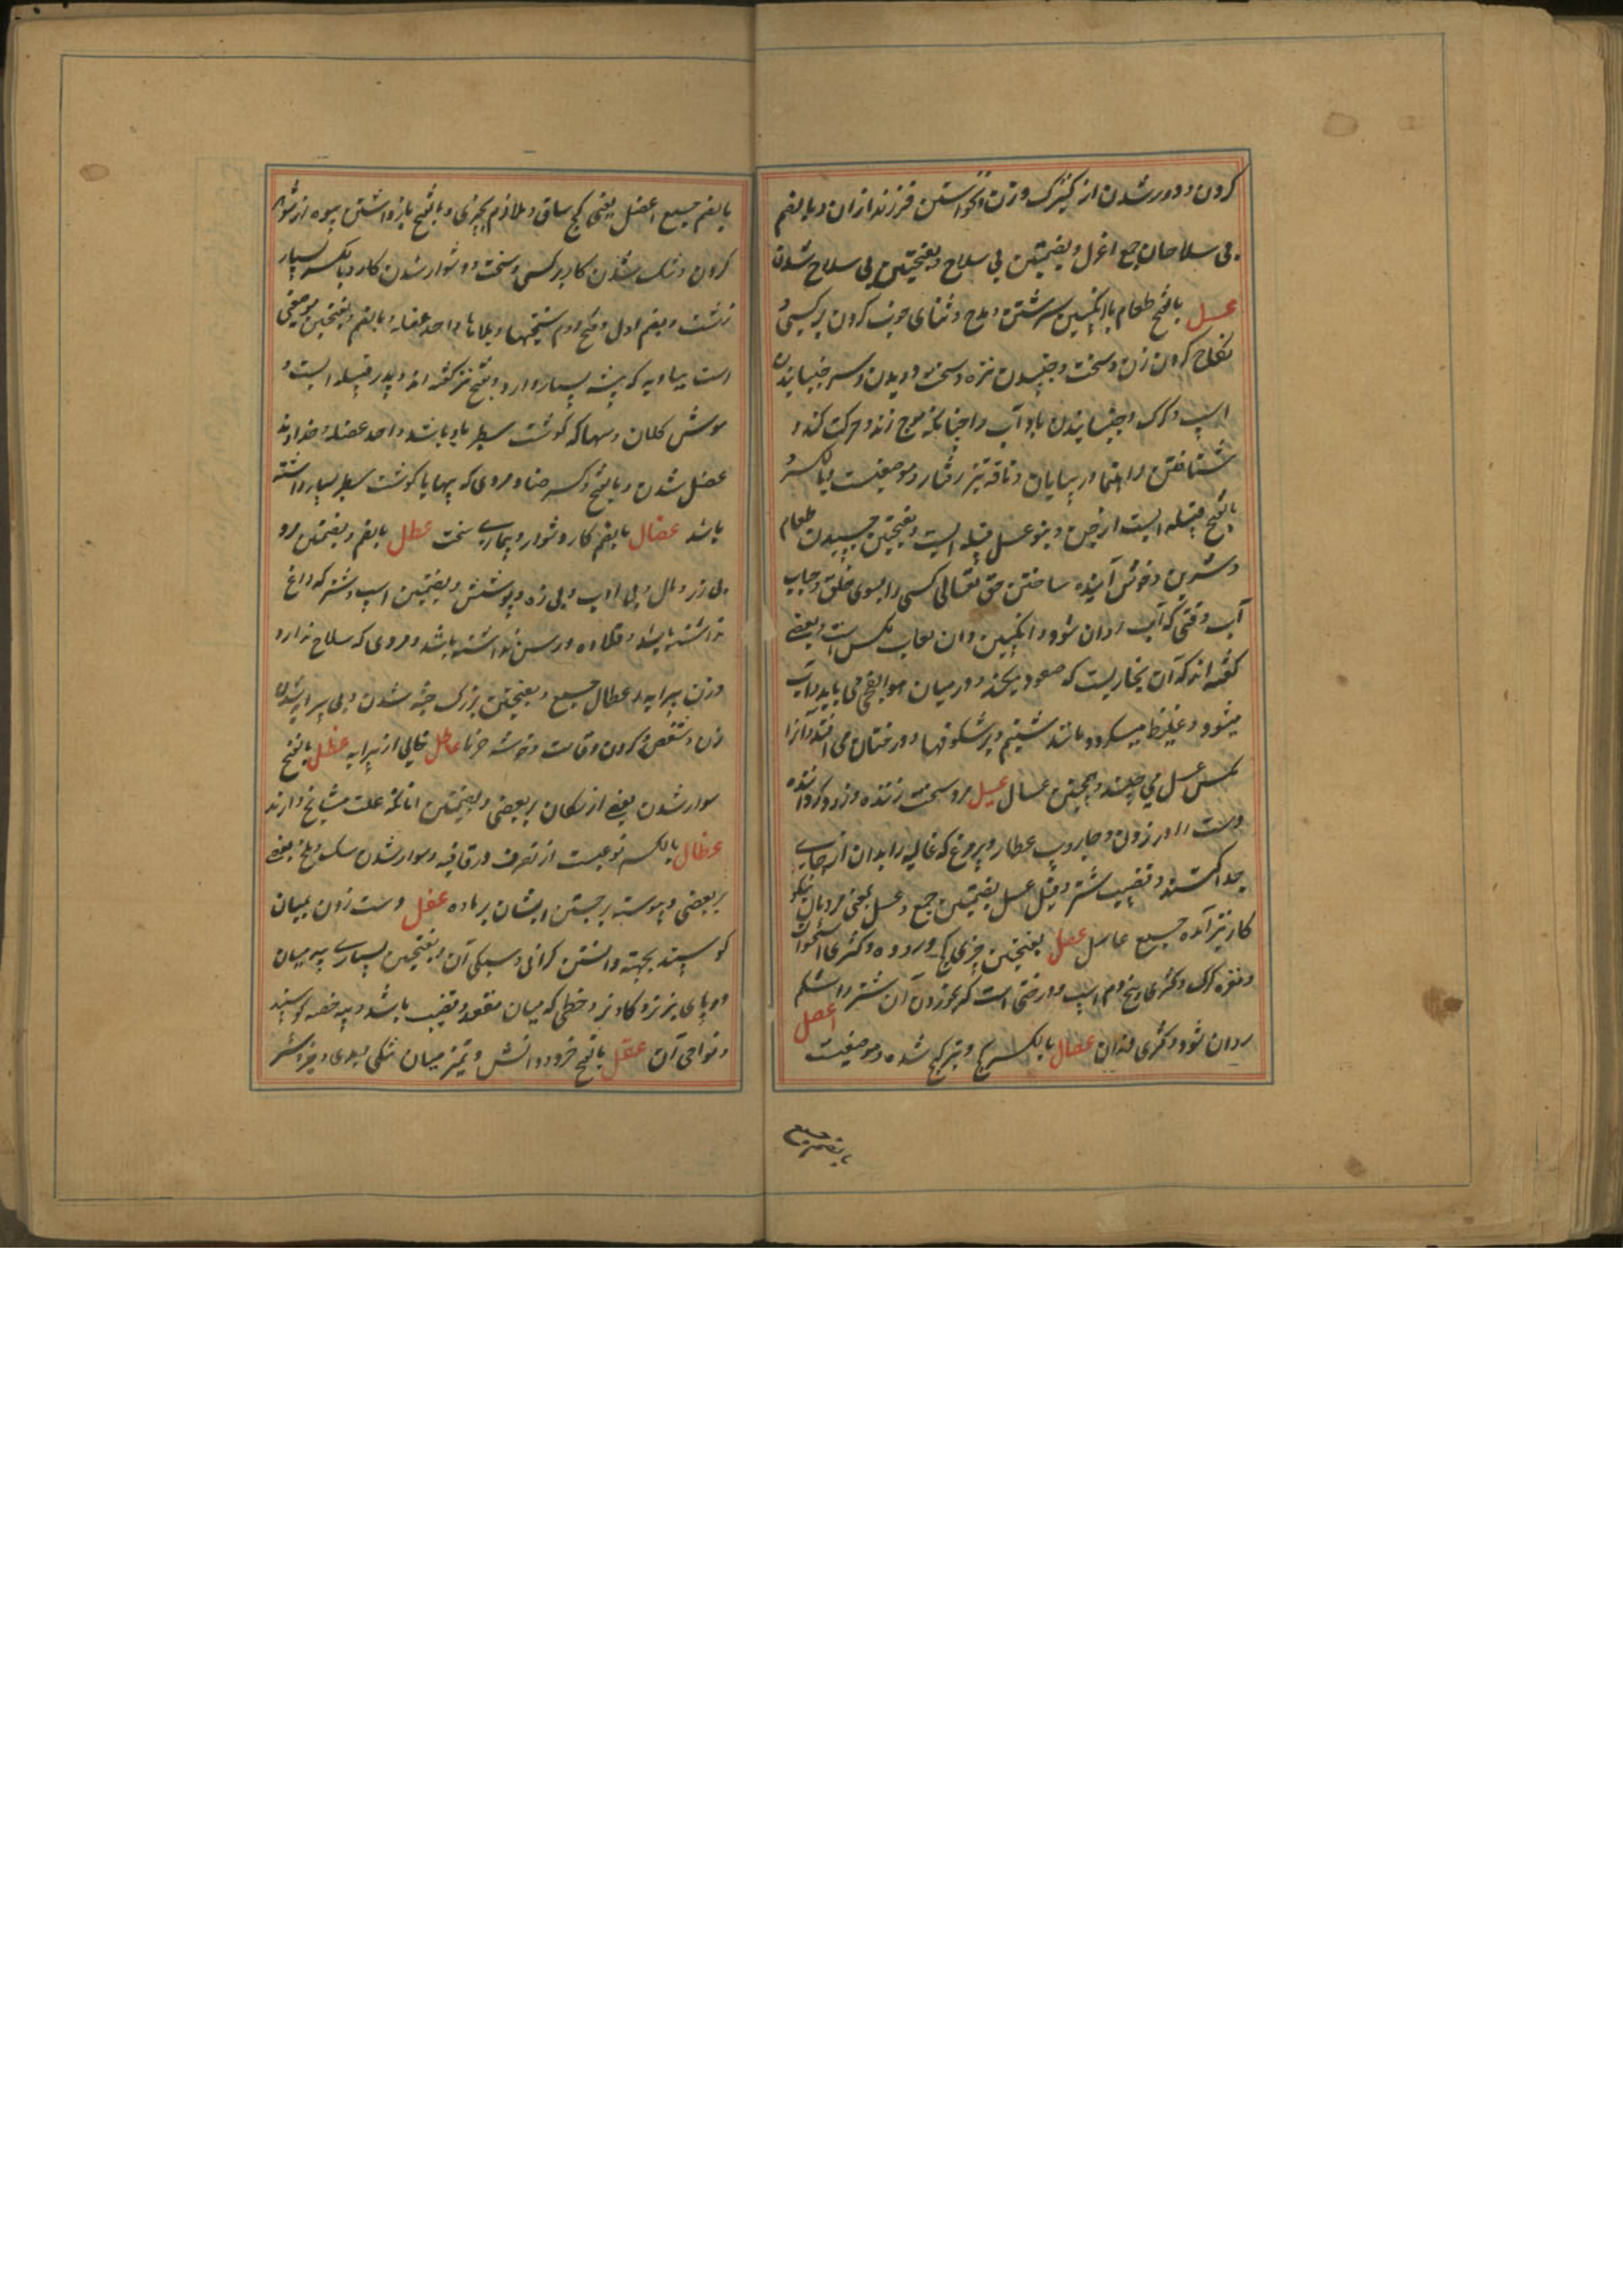 کردن و دور شدن از کنیزک وزن و نخواستن فرزند ازان و بالضم
بی سلاحان جمع اعزل و بضمتین بی سلاح و بفتحتین بی سلاح شدن
عسل بالفتح طعام با انگبین سرشتن و مدح و ثنای خوب کردن بر کسی و
نکاح کردن زن و سخت جنبیدن نیزه و سخت دویدن و سر جنبانیدن
اسپ و گرگ و جنبانیدن باد آب را چنانکه موج زند و حرکت کند و
شتافتن راهنما در بیابان و ناقه تیز رفتار و موضعیست و بالکسر و
بالفتح قبیله ایست از جن و بنو عسل قبیله ایست و بفتحتین چسپیدن طعام
و شیرین و خوش آینده ساختن حق تعالی کسی را بسوی خلق و حباب
آب وقتی که آب روان شود و انگبین و آن لعاب مگس است و بعضی
گفته اند که آن بخاریست که صعود میکند و در میان هوا نضج می یابد و آب
میشود و غلیظ میگردد و مانند شبنم بر شکوفها و درختان می افتد و آنرا
مگس عسل می چیند و همچنین عسال عسیل مرد سخت زننده و زود گرداننده
دست را در زدن و جاروب عطار و پروغ که غالیه را بدان از جای
جدا کنند و قضیب شتر و فیل عسل بضمتین جمع و عسل یعنی مردمان نیکو
کار نیز آمده جمیع عاسل عصل بفتحتین چیزی کج و روده و کژی استخوان
و نقره گرگ و کژی بیخ دم اسپ و درختی است که بخوردن آن شتر را شکم
روان شود و کژی دندان عصال بالکسر کج و تیر کج شده و موضعیست اعصل
بالضم جمیع
بالضم جمیع اعضل یعنی کج ساق و ملازم بچیزی و بالفتح بازداشتن بیوه از شوهر
کردن و تنک شدن کار بر کسی و سخت و دشوار شدن کار و بالکسر بسیار
زشت و بضم اول و فتح دوم سختیها و بلاها واحد عضله و بالضم و بفتحتین موضعی
است ببادیه که بیشه بسیار دارد و بفتح نیز گفته اند و پدر قبیله ایست و
موش کلان و پیها که گوشت سطبر با او باشد واحد عضله و خداوند
عضل شدن و بالفتح و کسر ضاد مردی که پیها با گوشت سطبر بسیار داشته
باشد عضال بالضم کار دشوار و بیماری سخت عطل بالضم و بضمتین مرد
بی زر و مال و بی ادب و بی زه و پوشش و بضمتین اسپ و شتر که داغ
نداشته باشد و قلاده و رسن نداشته باشد و مردی که سلاح ندارد
و زن بی پیرایه و اعطال جمیع و بفتحتین بزرگ جثه شدن و بی پیرایه شدن
زن و شخص و گردن و قامت و خوشه خرما عاطل خالی از پیرایه عظل بالفتح
سوار شدن بعضی از سگان بر بعضی و بضمتین آنانکه علت مشایخ دارند
عظال بالکسر نوعیست از تصرف در قافیه و سوار شدن سگ و ملخ بعضی
بر بعضی و پیوسته بر جستن ایشان بر ماده عفل دست زدن بمیان
گوسپند بجهته دانستن گرانی و سبکی آن و بفتحتین بسیاری پیه میان
دو پای بز نر و گاو نر و خطی که میان مقعد و قضیب باشد و پیه خصیه گوسپند
و نواحی آن عقل بالفتح خرد و دانش و تمیز میان نیکی و بدی و خیر و شر